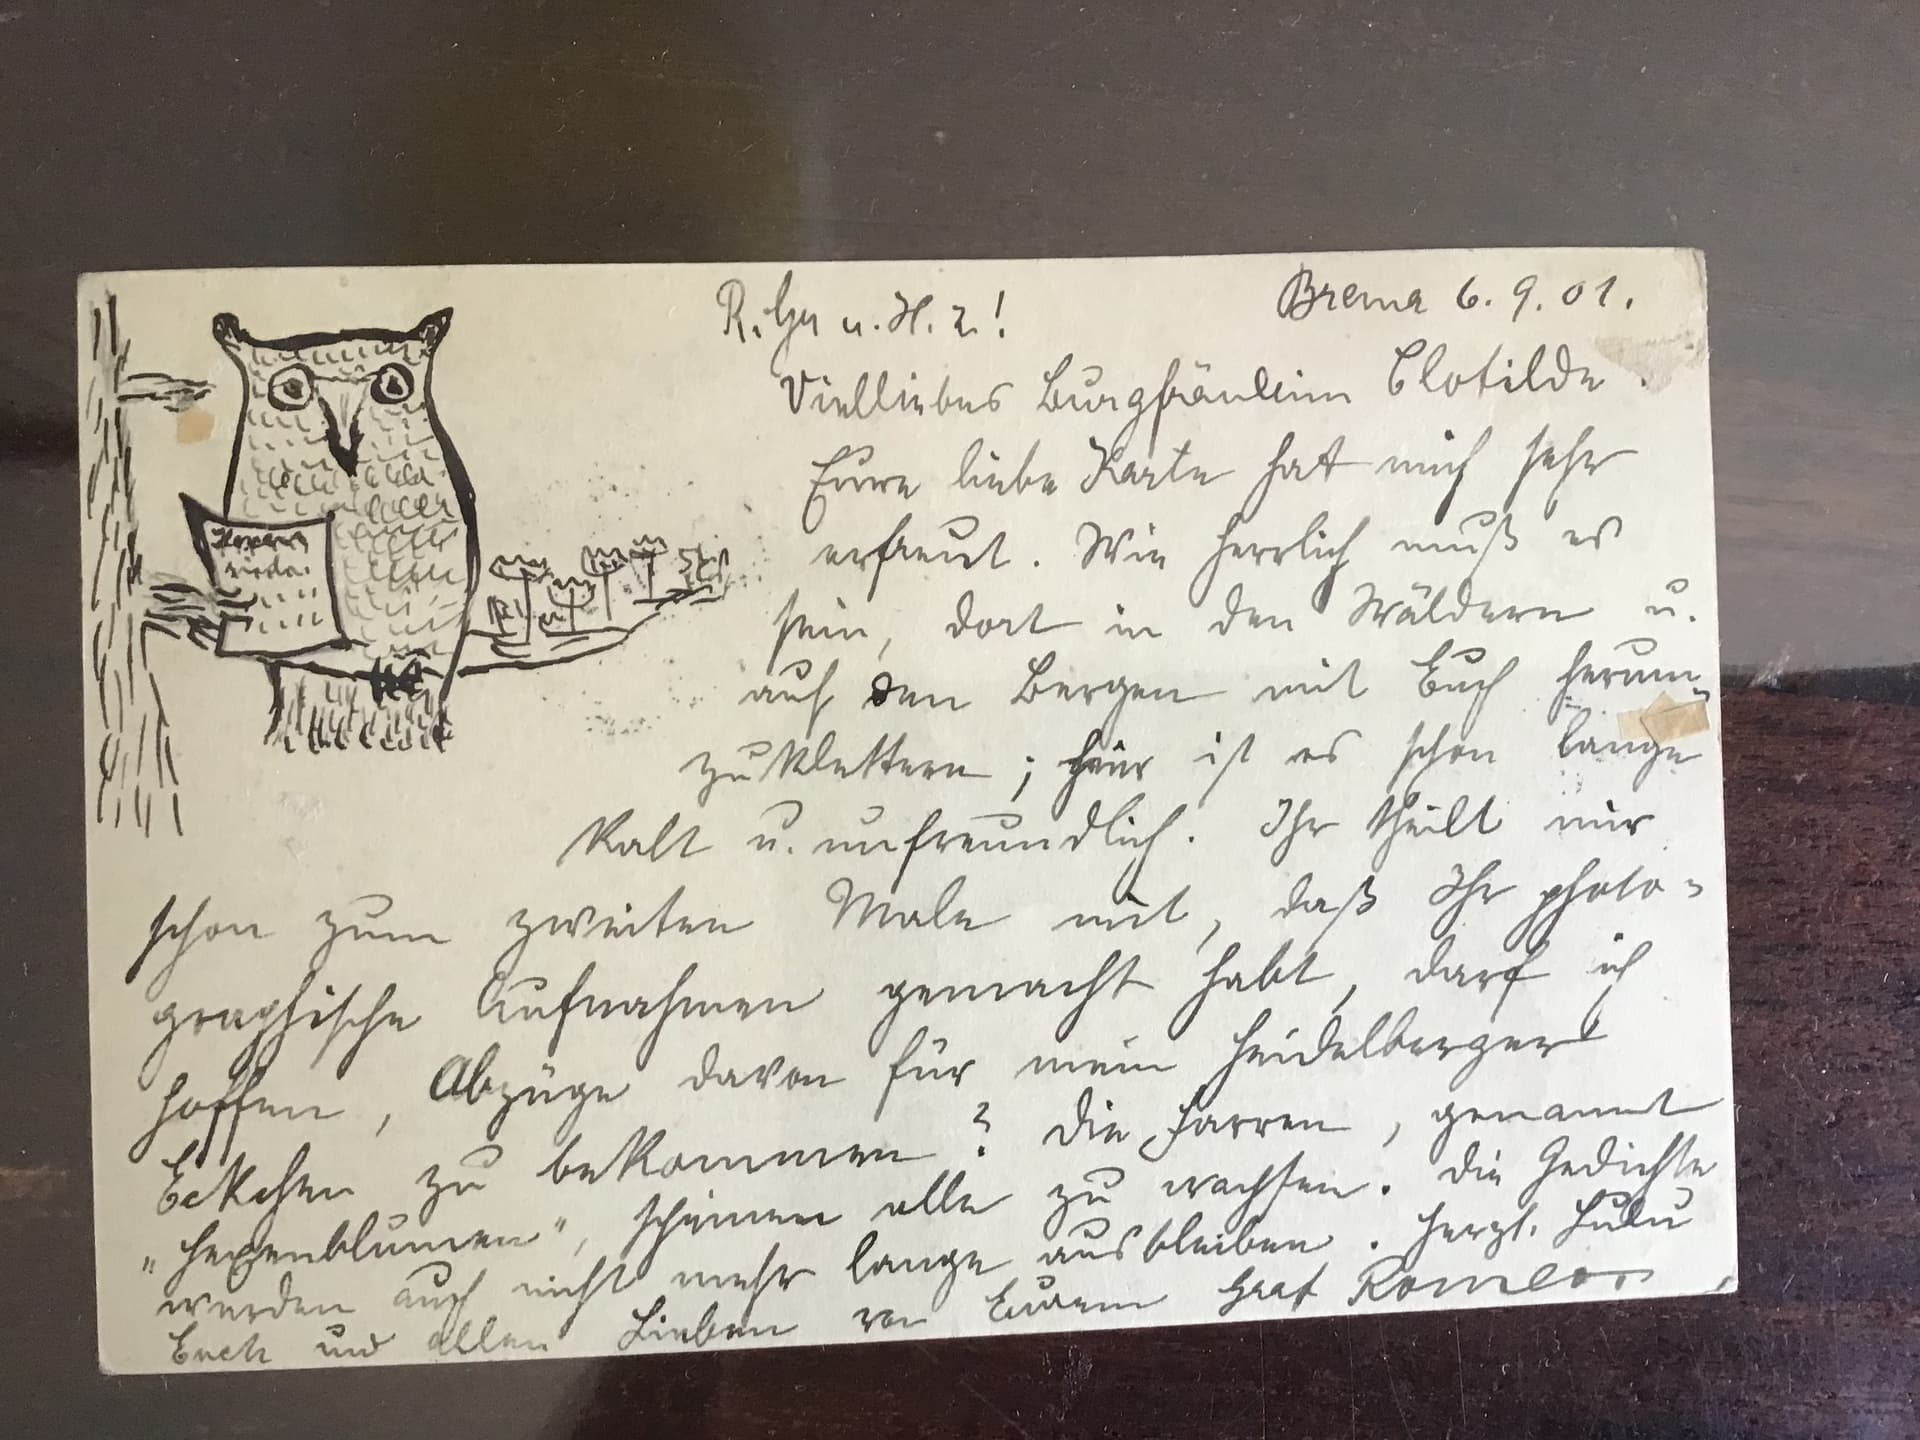 R. Gr. u. H. z.!
Brema 6. 9. 01.
Vielliebes Burgfräulein Clotilde.
Eure liebe Karte hat mich sehr
erfreut. Wie herrlich muß es
sein, dort in den Wäldern u.
auf den Bergen mit Euch herum
zu klettern; hier ist es schon lange
kalt u. unfreundlich. Ihr theilt mir
schon zum zweiten Male mit, daß Ihr photo=
graphische Aufnahmen gemacht habt, darf ich
hoffen, Abzüge davon für mein Heidelberger
Eckchen zu bekommen? Die Farren, genannt
„Hexenblumen“, scheinen alle zu wachsen. Die Gedichte
werden auch nicht mehr lange ausbleiben. Herzl.
Euch und allen Lieben von Eurem Graf Romeo